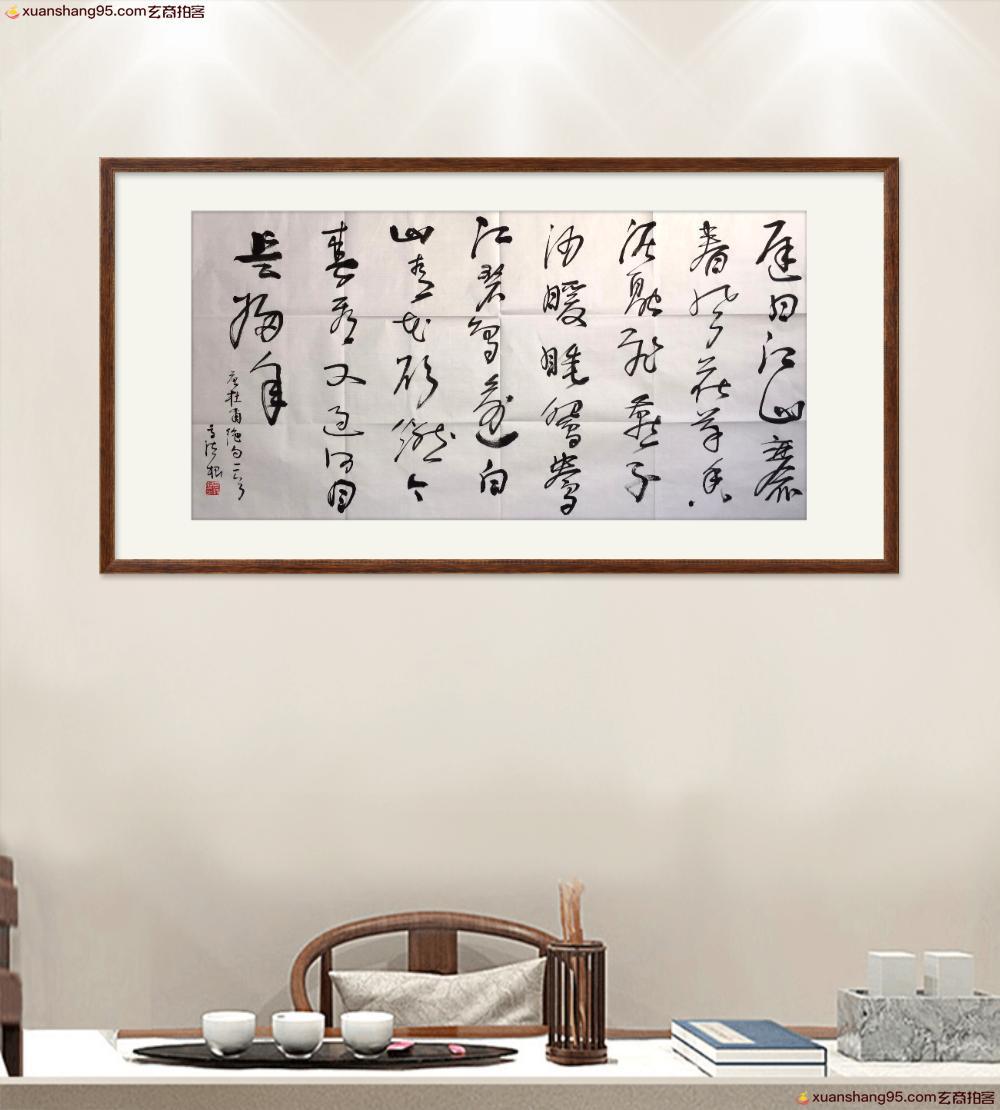 xuanshang95.com玄商拍客
遲日江山麗
春風花草香
泥融飛燕子
沙暖睡鴛鴦
江碧鳥逾白
山青花欲燃今
春看又過何日
是歸年
唐杜甫絕句二首
xuanshang95.com玄商拍客